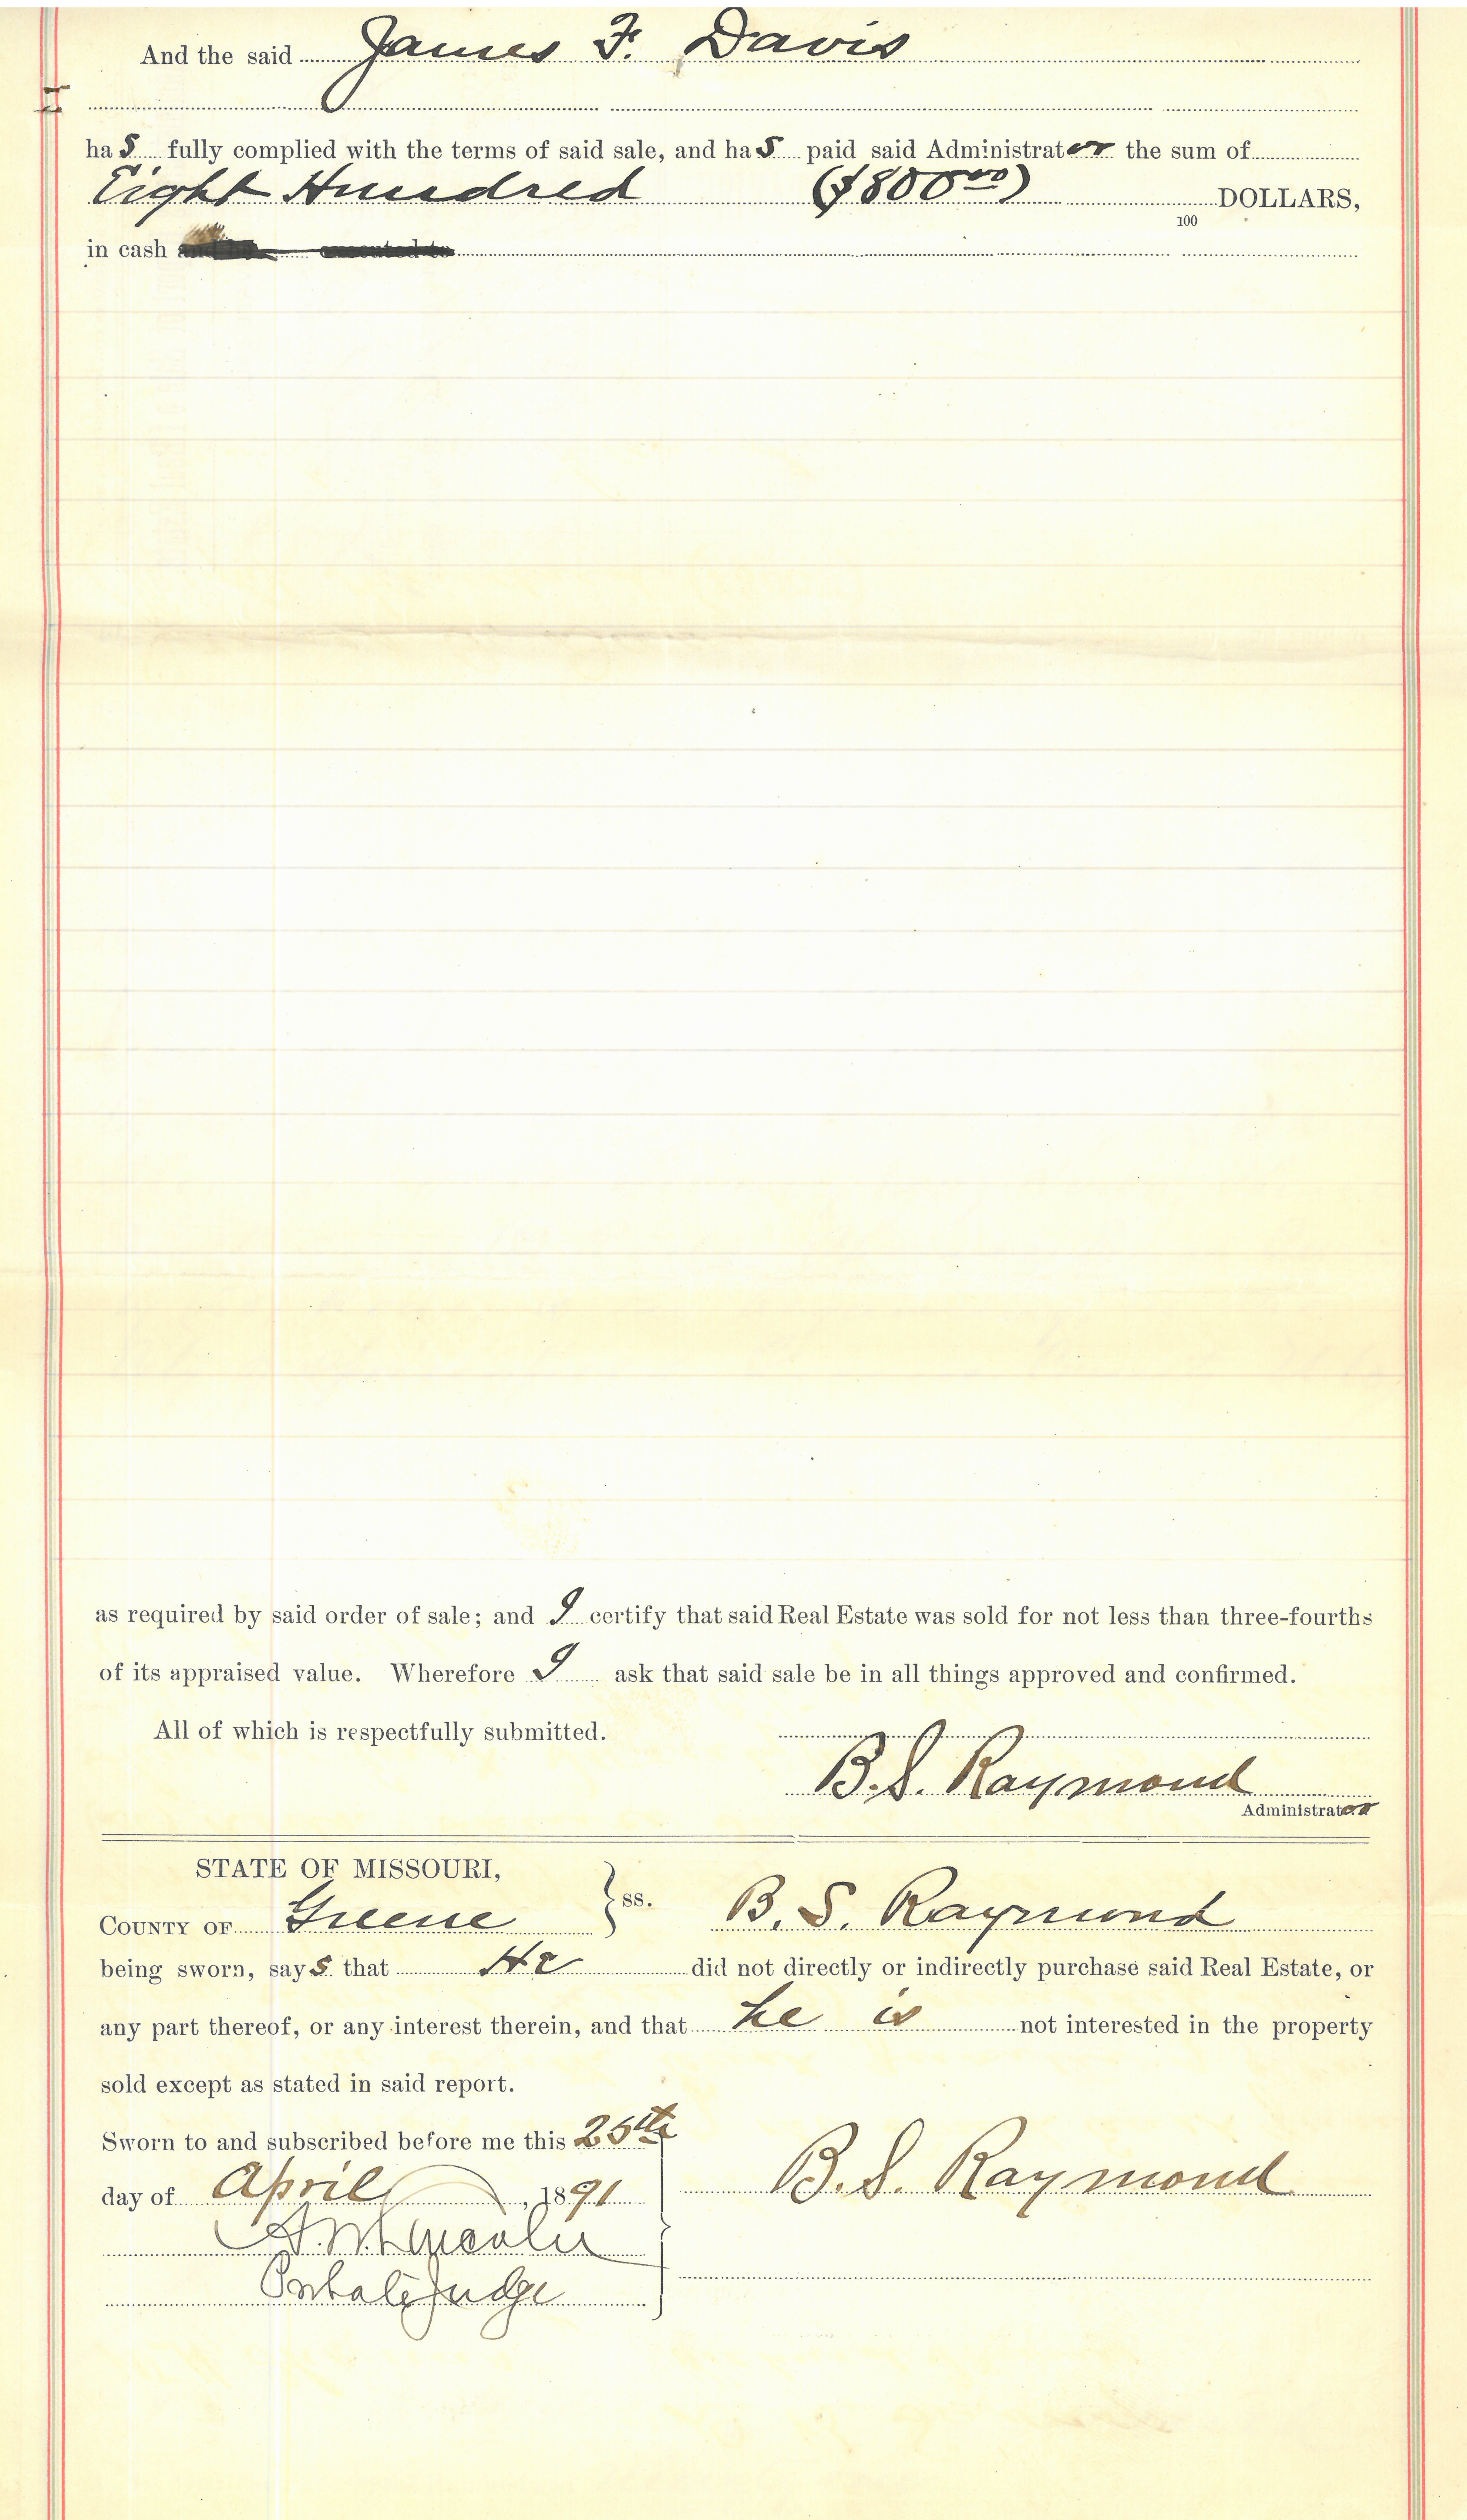 And the said James F. Davis
has fully complied with the terms of said sale, and has paid said Administrator the sum of
Eight Hundred ($800 00) DOLLARS,
100
in cash
as required by said order of sale; and I certify that said Real Estate was sold for not less than three-fourths
of its appraised value. Wherefore I ask that said sale be in all things approved and confirmed.
All of which is respectfully submitted.
B. S. Raymond
Administrator
STATE OF MISSOURI,
COUNTY OF Greene } ss. B. S. Raymond
being sworn, says that He did not directly or indirectly purchase said Real Estate, or
any part thereof, or any interest therein, and that he is not interested in the property
sold except as stated in said report.
Sworn to and subscribed before me this 25th
day of April, 1891 B. S. Raymond
Judge